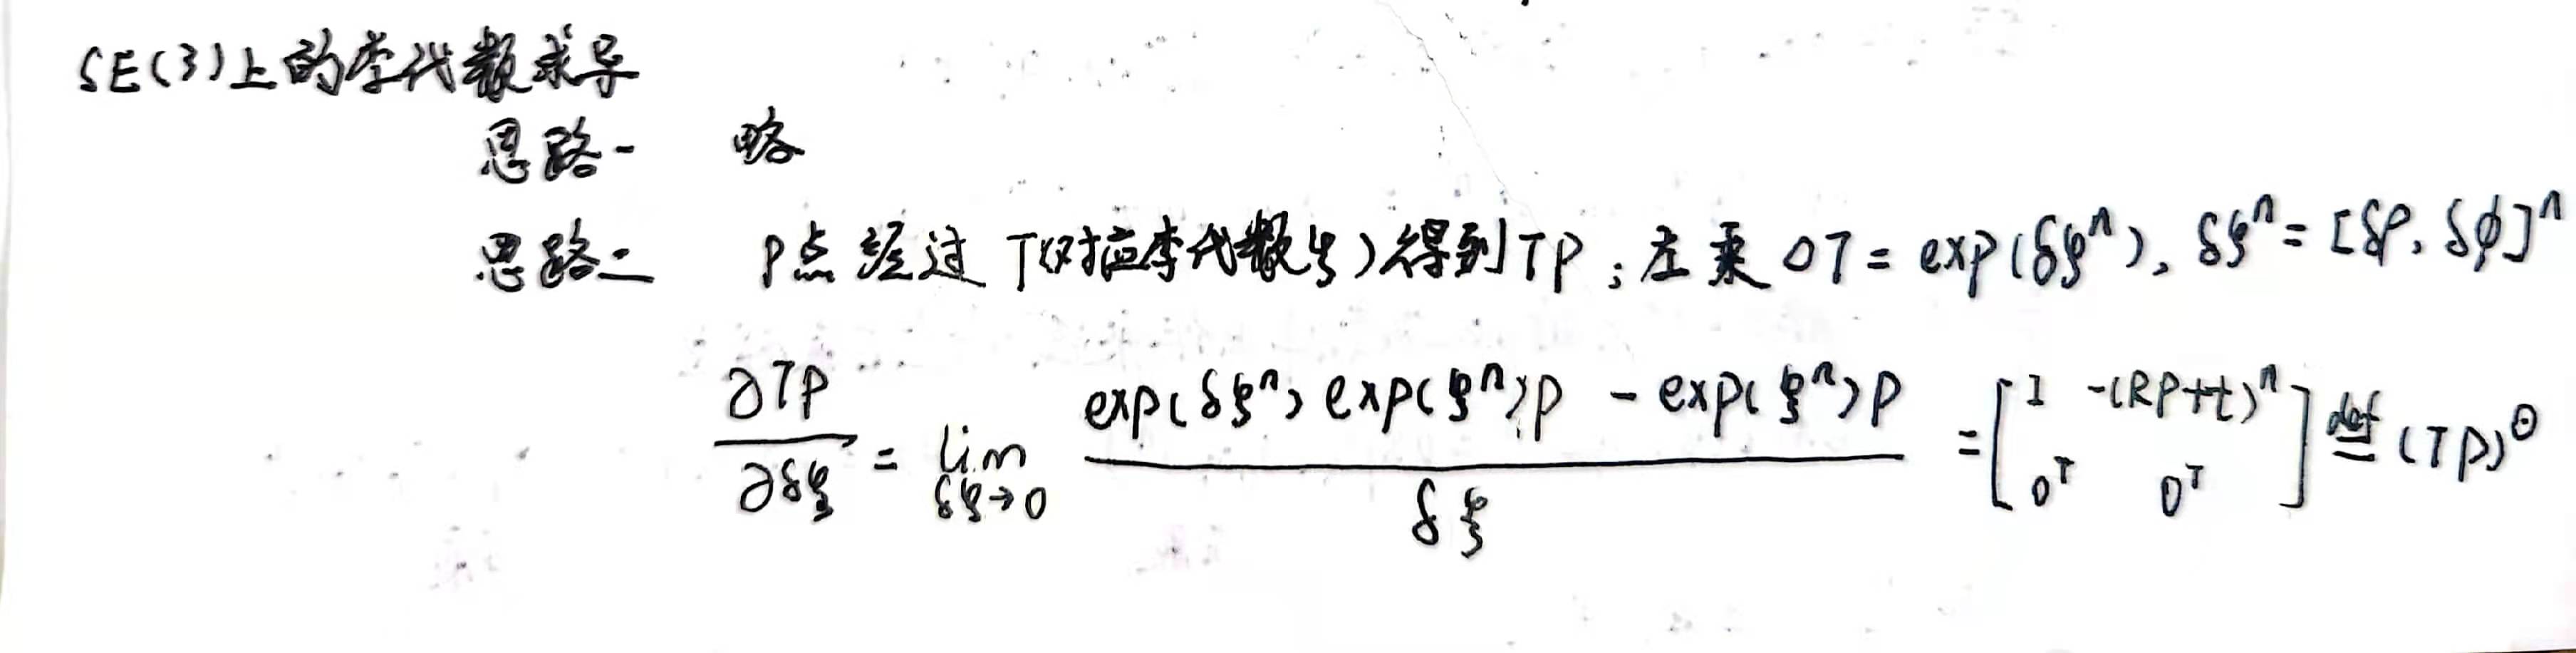 SE(3)上的李代数求导
思路一 略
思路二 P点经过T(对应李代数ξ)得到TP；左乘ΔT = exp(δξ^∧), δξ^∧ = [δρ, δϕ]^∧
∂TP/∂δξ = lim_{δξ→0} (exp(δξ^∧) exp(ξ^∧)p - exp(ξ^∧)p)/δξ = [I -(RP+t)^∧; 0^T 0^T] ≝ (TP)^⊙